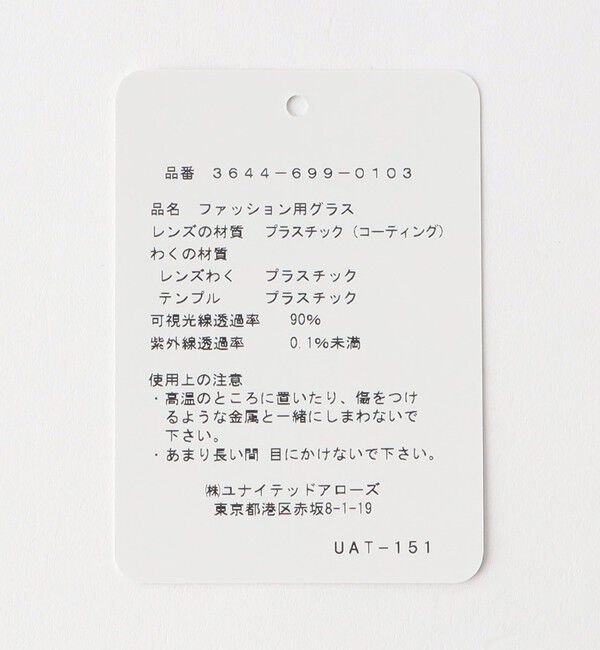 品番 3644-699-0103
品名 ファッション用グラス
レンズの材質 プラスチック(コーティング)
わくの材質
レンズわく プラスチック
テンプル プラスチック
可視光線透過率 90%
紫外線透過率 0.1%未満
使用上の注意
・高温のところに置いたり、傷をつけ
るような金属と一緒にしまわないで
下さい。
・あまり長い間 目にかけないで下さい。
㈱ユナイテッドアローズ
東京都港区赤坂8-1-19
UAT-151